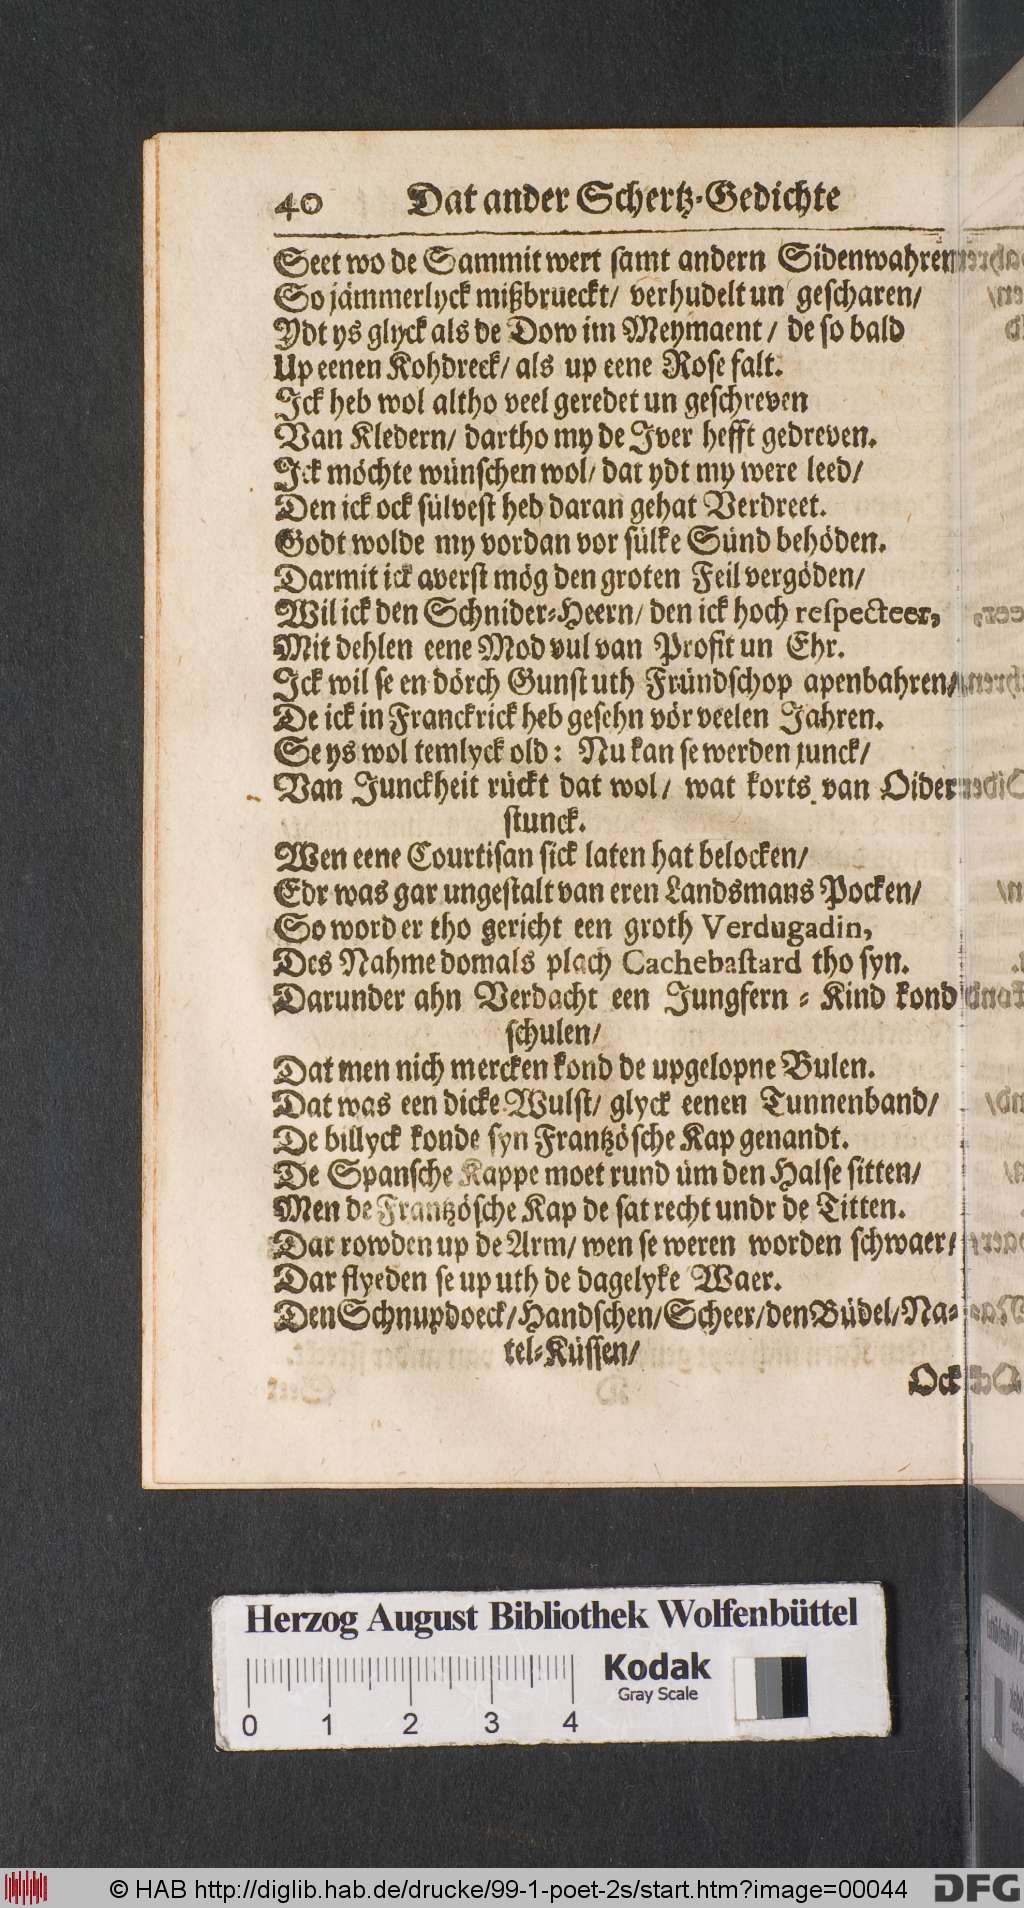 40 Dat ander Schertz-Gedichte
Seet wo de Sammit wert samt andern Sidenwahren
So jämmerlyck mißbrueckt/ verhudelt un gescharen/
Ydt ys glyck als de Dow im Meymaent/ de so bald
Up eenen Kohdreck/ als up eene Rose falt.
Ick heb wol altho veel geredet un geschreven
Van Kledern/ dartho my de Iver hefft gedreven.
Ick möchte wünschen wol/ dat ydt my were leed/
Den ick ock sülvest heb daran gehat Verdreet.
Godt wolde my vordan vor sülke Sünd behöden.
Darmit ick averst mög den groten Feil vergöden/
Wil ick den Schnider-Heern/ den ick hoch respecteer,
Mit dehlen eene Mod vul van Profit un Ehr.
Ick wil se en dörch Gunst uth Fründschop apenbahren/
De ick in Franckrick heb gesehn vör veelen Jahren.
Se ys wol temlyck old: Nu kan se werden junck/
Van Junckheit rückt dat wol/ wat korts van Older
stunck.
Wen eene Courtisan sick laten hat belocken/
Edr was gar ungestalt van eren Landsmans Pocken/
So word er tho gericht een groth Verdugadin,
Des Nahme domals plach Cachebastard tho syn.
Darunder ahn Verdacht een Jungfern-Kind kond
schulen/
Dat men nich mercken kond de upgelopne Bulen.
Dat was een dicke Wulst/ glyck eenen Tunnenband/
De billyck konde syn Frantzösche Kap genandt.
De Spansche Kappe moet rund üm den Halse sitten/
Men de Frantzösche Kap de sat recht undr de Titten.
Dar rowden up de Arm/ wen se weren worden schwaer/
Dar flyeden se up uth de dagelyke Waer.
Den Schnupdoeck/ Handschen/ Scheer/ den Büdel/ Na-
tel-Küssen/
Ock
Herzog August Bibliothek Wolfenbüttel
Kodak
Gray Scale
0 1 2 3 4
© HAB http://diglib.hab.de/drucke/99-1-poet-2s/start.htm?image=00044
DFG